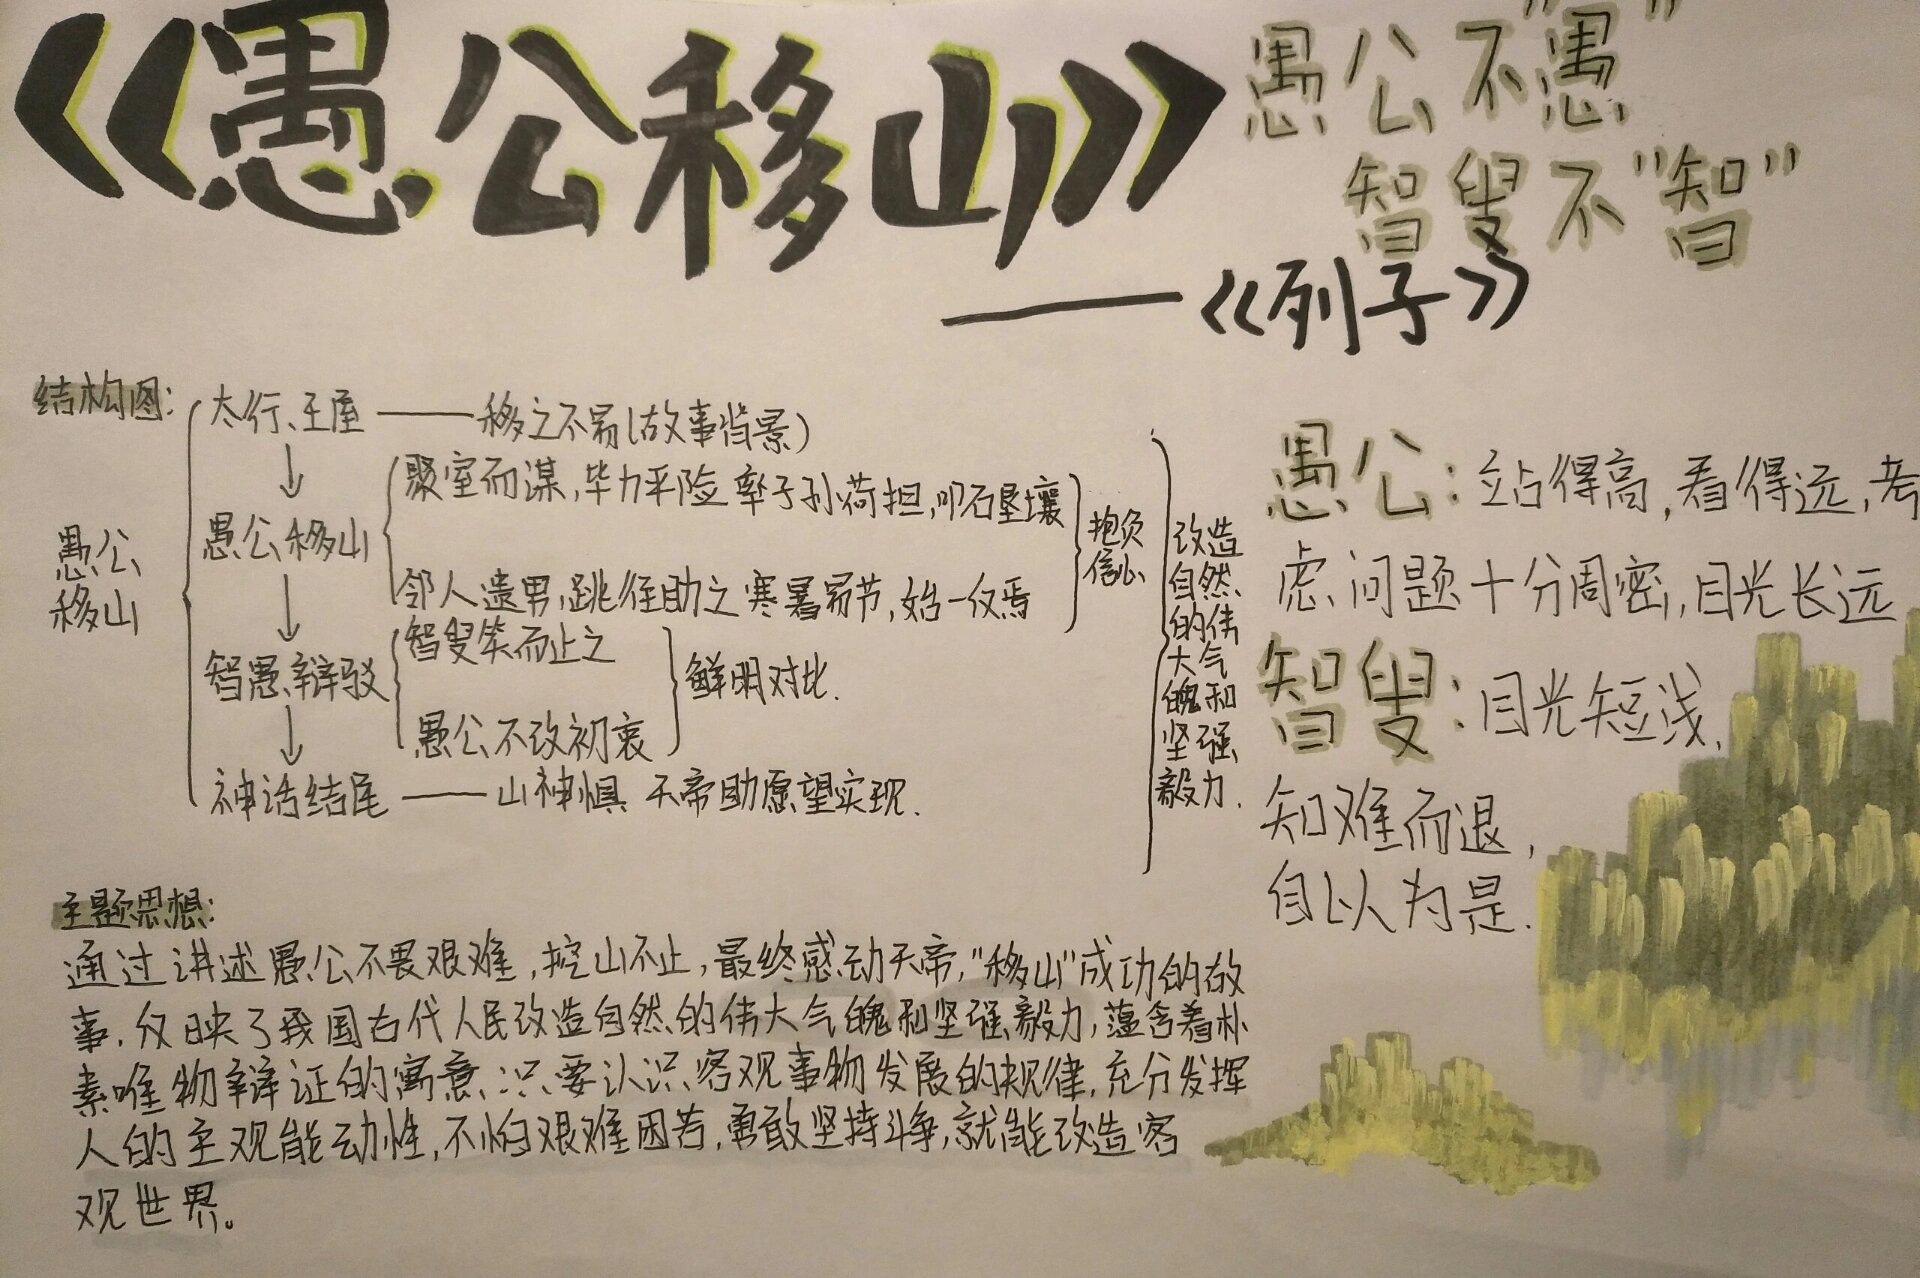 《愚公移山》
愚公不"愚"
智叟不"智"
——《列子》
结构图:
愚公
移山
太行、王屋——移之不易(故事背景)
愚公移山
聚室而谋,毕力平险 率子孙荷担,叩石垦壤
邻人遗男,跳往助之 寒暑易节,始一反焉
抱负
信心
智愚辩驳
智叟笑而止之
愚公不改初衷
鲜明对比.
神话结尾——山神惧 天帝助愿望实现.
改造
自然
的伟
大气
魄和
坚强
毅力.
愚公:站得高,看得远,考
虑问题十分周密,目光长远
智叟:目光短浅,
知难而退,
自以为是.
主题思想:
通过讲述愚公不畏艰难,挖山不止,最终感动天帝,"移山"成功的故
事.反映了我国古代人民改造自然的伟大气魄和坚强毅力,蕴含着朴
素唯物辩证的寓意:只要认识客观事物发展的规律,充分发挥
人的主观能动性,不怕艰难困苦,勇敢坚持斗争,就能改造客
观世界。